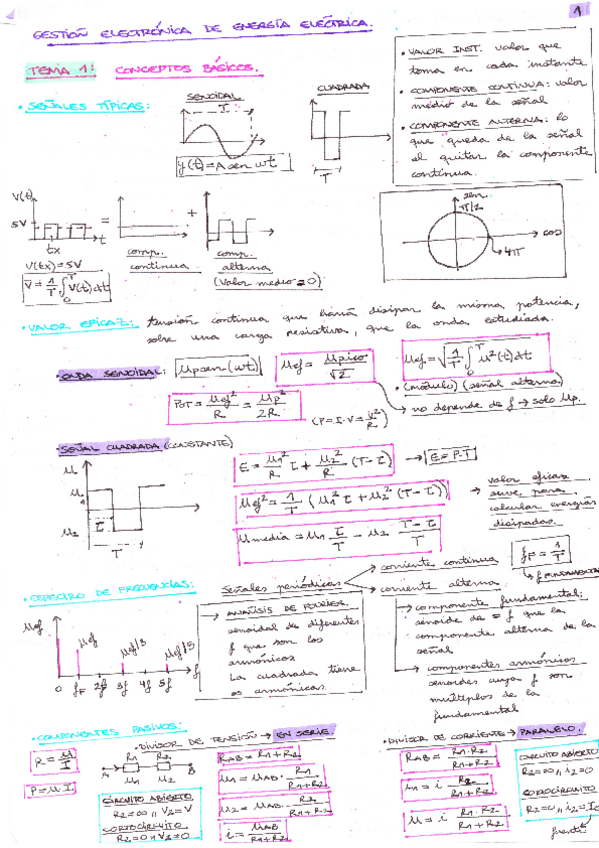 GESTIÓN ELECTRÓNICA DE ENERGÍA ELÉCTRICA.
1
TEMA 1: CONCEPTOS BÁSICOS.
• SEÑALES TÍPICAS:
SENOIDAL
T
y(t)=A sen wt
CUADRADA
T
• VALOR INST. valor que
toma en cada instante
• COMPONENTE CONTINUA: valor
medio de la señal
• COMPONENTE ALTERNA: lo
que queda de la señal
al quitar la componente
continua.
V(t)
5V
tx
t
=
+
V(tx)=5V
V = 1/T ∫₀ᵀ V(t)dt
comp.
continua
comp.
alterna
(Valor medio = 0)
sen
π/2
cos
• VALOR EFICAZ: tensión continua que haría disipar la misma potencia,
sobre una carga resistiva, que la onda estudiada.
• ONDA SENOIDAL: Up sen(wt)
Uef = Upico/√2
Uef = √(1/T ∫₀ᵀ u²(t)dt)
• (módulo) (señal alterna)
→ no depende de f → solo Up.
Pot = Uef²/R = Up²/2R
(P=I·V=V²/R)
• SEÑAL CUADRADA (CONSTANTE)
U
U1
U2
τ
T
E = U1²/R τ + U2²/R (T-τ) → E=P·T
Uef² = 1/T (U1² τ + U2² (T-τ))
→ valor eficaz
sirve para
calcular energías
disipadas.
Umedia = U1 τ/T - U2 (T-τ)/T
• ESPECTRO DE FRECUENCIAS:
Señales periódicas
→ corriente continua
→ corriente alterna
fF = 1/T
→ f FUNDAMENTAL
Uef
Uef
Uef/3
Uef/5
0 fF 2f 3f 4f 5f f
→ ANÁLISIS DE FOURIER.
senoidal de diferentes
f que son los
armónicos
La cuadrada tiene
∞ armónicas.
→ componente fundamental:
senoide de = f que la
componente alterna de la
señal
→ componentes armónicos
senoides cuya f son
múltiplos de la
fundamental
• COMPONENTES PASIVOS:
R = U/I
P = U·I
• DIVISOR DE TENSIÓN → EN SERIE.
A R1 R2 B
U1 U2
CIRCUITO ABIERTO
R2=∞ ,, V2=V
CORTOCIRCUITO
R2=0 ,, V2=0
RAB = R1+R2
U1 = UAB · R1/(R1+R2)
U2 = UAB · R2/(R1+R2)
i = UAB/(R1+R2)
• DIVISOR DE CORRIENTE → PARALELO.
RAB = R1·R2/(R1+R2)
U1 = i R2/(R1+R2)
U = i R1·R2/(R1+R2)
CIRCUITO ABIERTO
R2=∞ ,, i2=0
CORTOCIRCUITO
R2=0 ,, i2=I
fuente